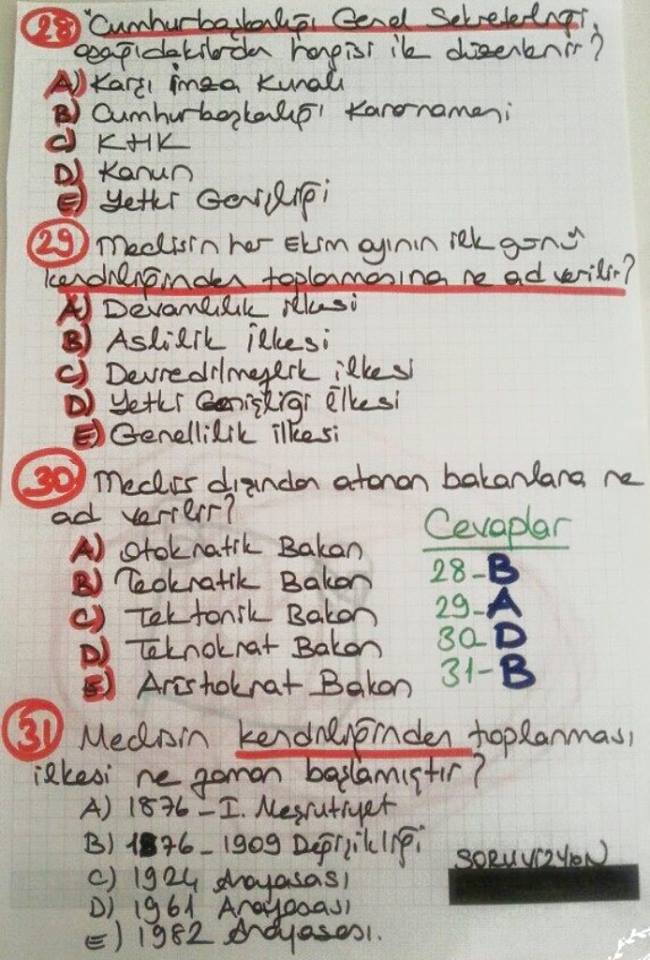 28 "Cumhurbaşkanlığı Genel Sekreterliği,
aşağıdakilerden hangisi ile düzenlenir?
A) Karşı imza Kuralı
B) Cumhurbaşkanlığı Kararnamesi
C) KHK
D) Kanun
E) Yetki Genişliği
29 Meclisin her Ekim ayının ilk günü
kendiliğinden toplanmasına ne ad verilir?
A) Devamlılık ilkesi
B) Aslilik ilkesi
C) Devredilmezlik ilkesi
D) Yetki Genişliği ilkesi
E) Genellilik ilkesi
30 Meclis dışından atanan bakanlara ne
ad verilir?
A) Otokratik Bakan
B) Teokratik Bakan
C) Tektonik Bakan
D) Teknokrat Bakan
E) Aristokrat Bakan
Cevaplar
28-B
29-A
30 D
31-B
31 Meclisin kendiliğinden toplanması
ilkesi ne zaman başlamıştır?
A) 1876 - I. Meşrutiyet
B) 1876 - 1909 Değişikliği
C) 1924 Anayasası
D) 1961 Anayasası
E) 1982 Anayasası.
SORUVİZYON